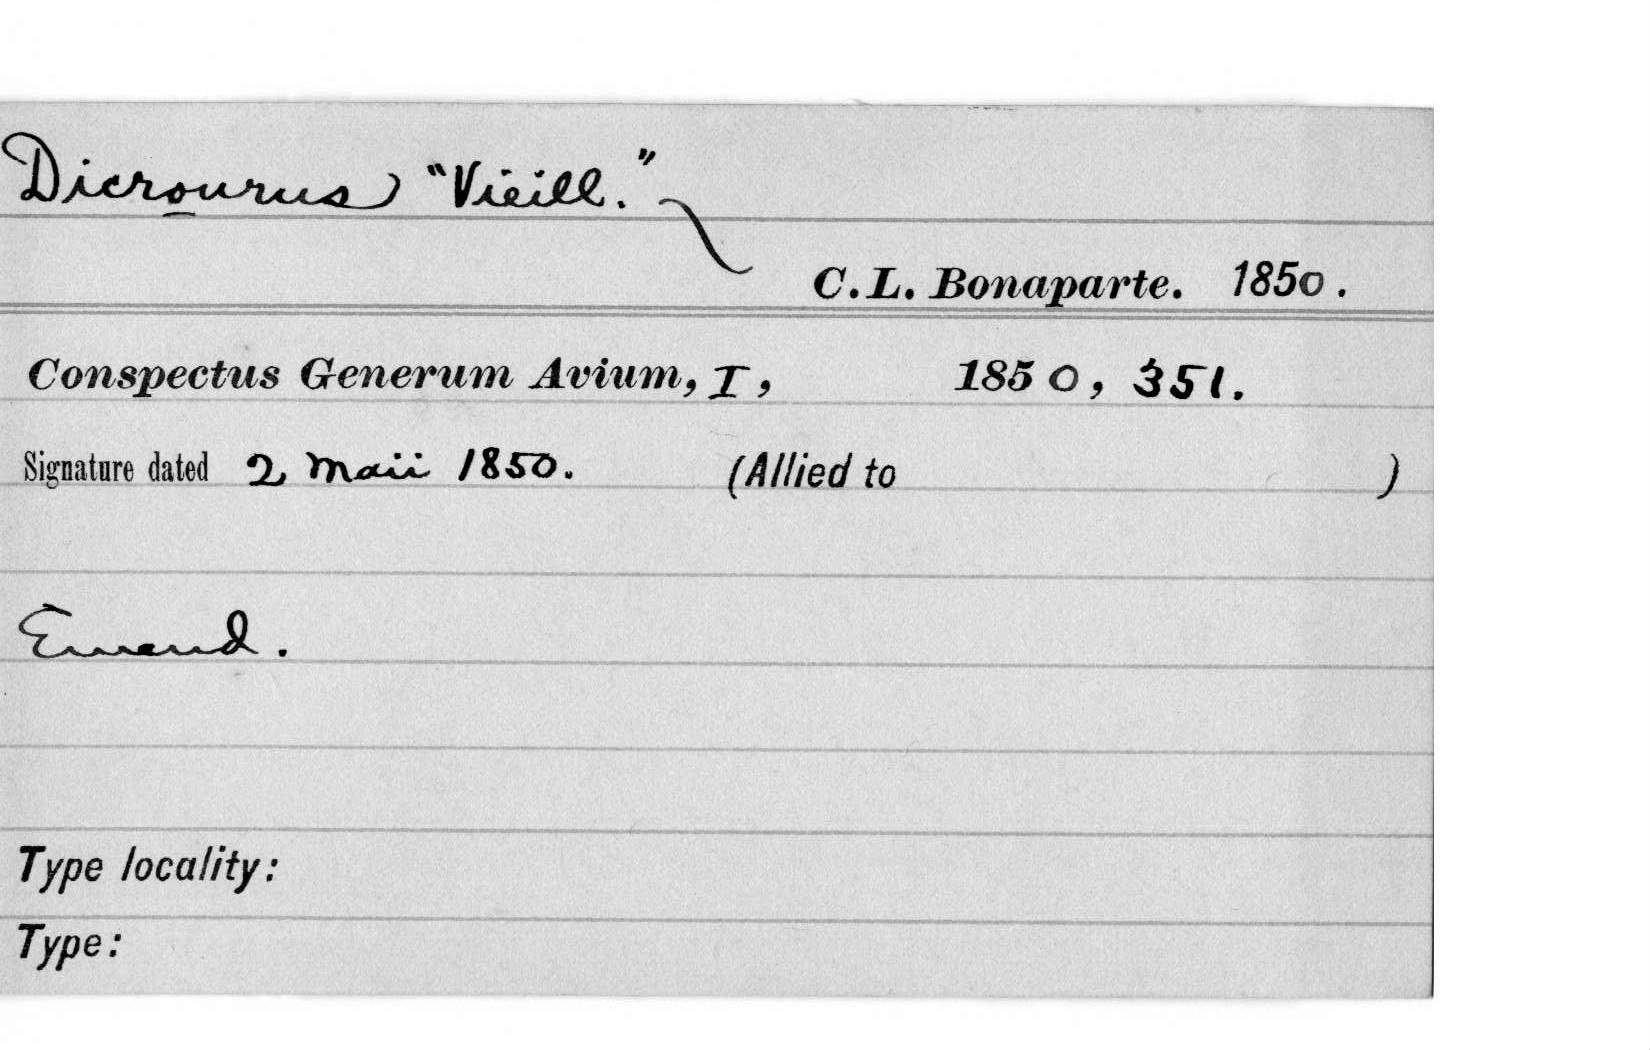 Dicrourus "Vieill."
C.L. Bonaparte. 1850.
Conspectus Generum Avium, I, 1850, 351.
Signature dated 2 Maii 1850. (Allied to )
Emend.
Type locality:
Type: